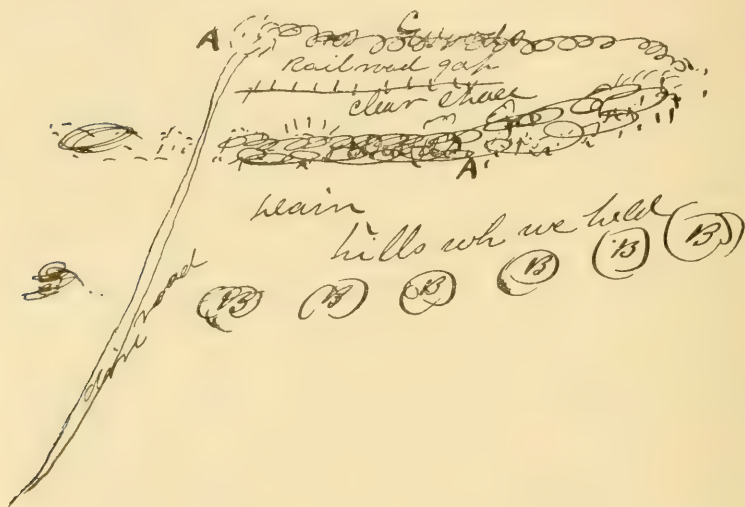 A C
Railroad gap
clear space
A
plain
hills wh we held
B B B B B B
road